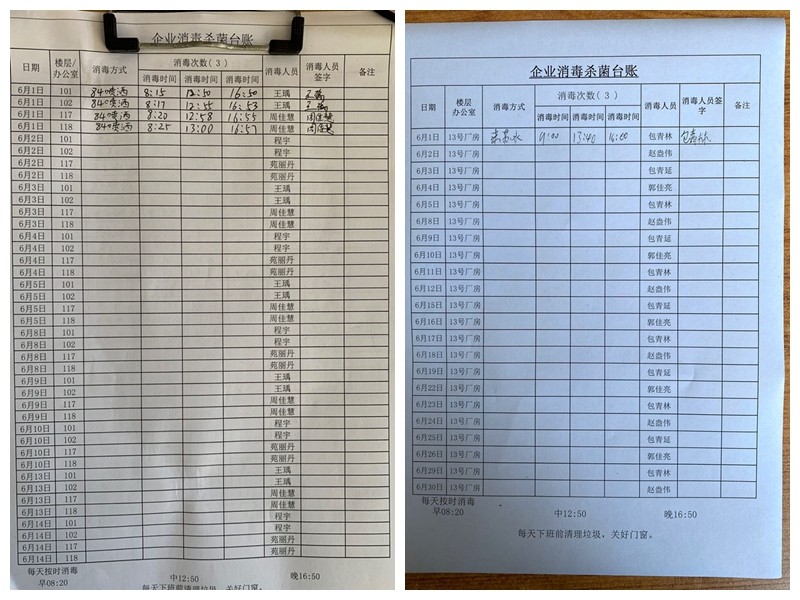 企业消毒杀菌台账
日期 楼层/办公室 消毒方式 消毒次数(3) 消毒人员 消毒人员签字 备注
消毒时间 消毒时间 消毒时间
6月1日 101 84喷洒 8:15 12:50 16:50 王瑀 王瑀
6月1日 102 84喷洒 8:17 12:55 16:53 王瑀 王瑀
6月1日 117 84喷洒 8:20 12:58 16:55 周佳慧 周佳慧
6月1日 118 84喷洒 8:25 13:00 16:57 周佳慧 周佳慧
6月2日 101 程宇
6月2日 102 程宇
6月2日 117 苑丽丹
6月2日 118 苑丽丹
6月3日 101 王瑀
6月3日 102 王瑀
6月3日 117 周佳慧
6月3日 118 周佳慧
6月4日 101 程宇
6月4日 102 程宇
6月4日 117 苑丽丹
6月4日 118 苑丽丹
6月5日 101 王瑀
6月5日 102 王瑀
6月5日 117 周佳慧
6月5日 118 周佳慧
6月8日 101 程宇
6月8日 102 程宇
6月8日 117 苑丽丹
6月8日 118 苑丽丹
6月9日 101 王瑀
6月9日 102 王瑀
6月9日 117 周佳慧
6月9日 118 周佳慧
6月10日 101 程宇
6月10日 102 程宇
6月10日 117 苑丽丹
6月10日 118 苑丽丹
6月13日 101 王瑀
6月13日 102 王瑀
6月13日 117 周佳慧
6月13日 118 周佳慧
6月14日 101 程宇
6月14日 102 程宇
6月14日 117 苑丽丹
6月14日 118 苑丽丹
每天按时消毒
早08:20 中12:50 晚16:50
每天下班前清理垃圾，关好门窗。
企业消毒杀菌台账
日期 楼层办公室 消毒方式 消毒次数(3) 消毒人员 消毒人员签字 备注
消毒时间 消毒时间 消毒时间
6月1日 13号厂房 来苏水 9:00 13:40 16:00 包青林 包青林
6月2日 13号厂房 赵盎伟
6月3日 13号厂房 包青延
6月4日 13号厂房 郭佳亮
6月5日 13号厂房 包青林
6月8日 13号厂房 赵盎伟
6月9日 13号厂房 包青延
6月10日 13号厂房 郭佳亮
6月11日 13号厂房 包青林
6月12日 13号厂房 赵盎伟
6月15日 13号厂房 包青延
6月16日 13号厂房 郭佳亮
6月17日 13号厂房 包青林
6月18日 13号厂房 赵盎伟
6月19日 13号厂房 包青延
6月22日 13号厂房 郭佳亮
6月23日 13号厂房 包青林
6月24日 13号厂房 赵盎伟
6月25日 13号厂房 包青延
6月26日 13号厂房 郭佳亮
6月29日 13号厂房 包青林
6月30日 13号厂房 赵盎伟
每天按时消毒
早08:20 中12:50 晚16:50
每天下班前清理垃圾，关好门窗。